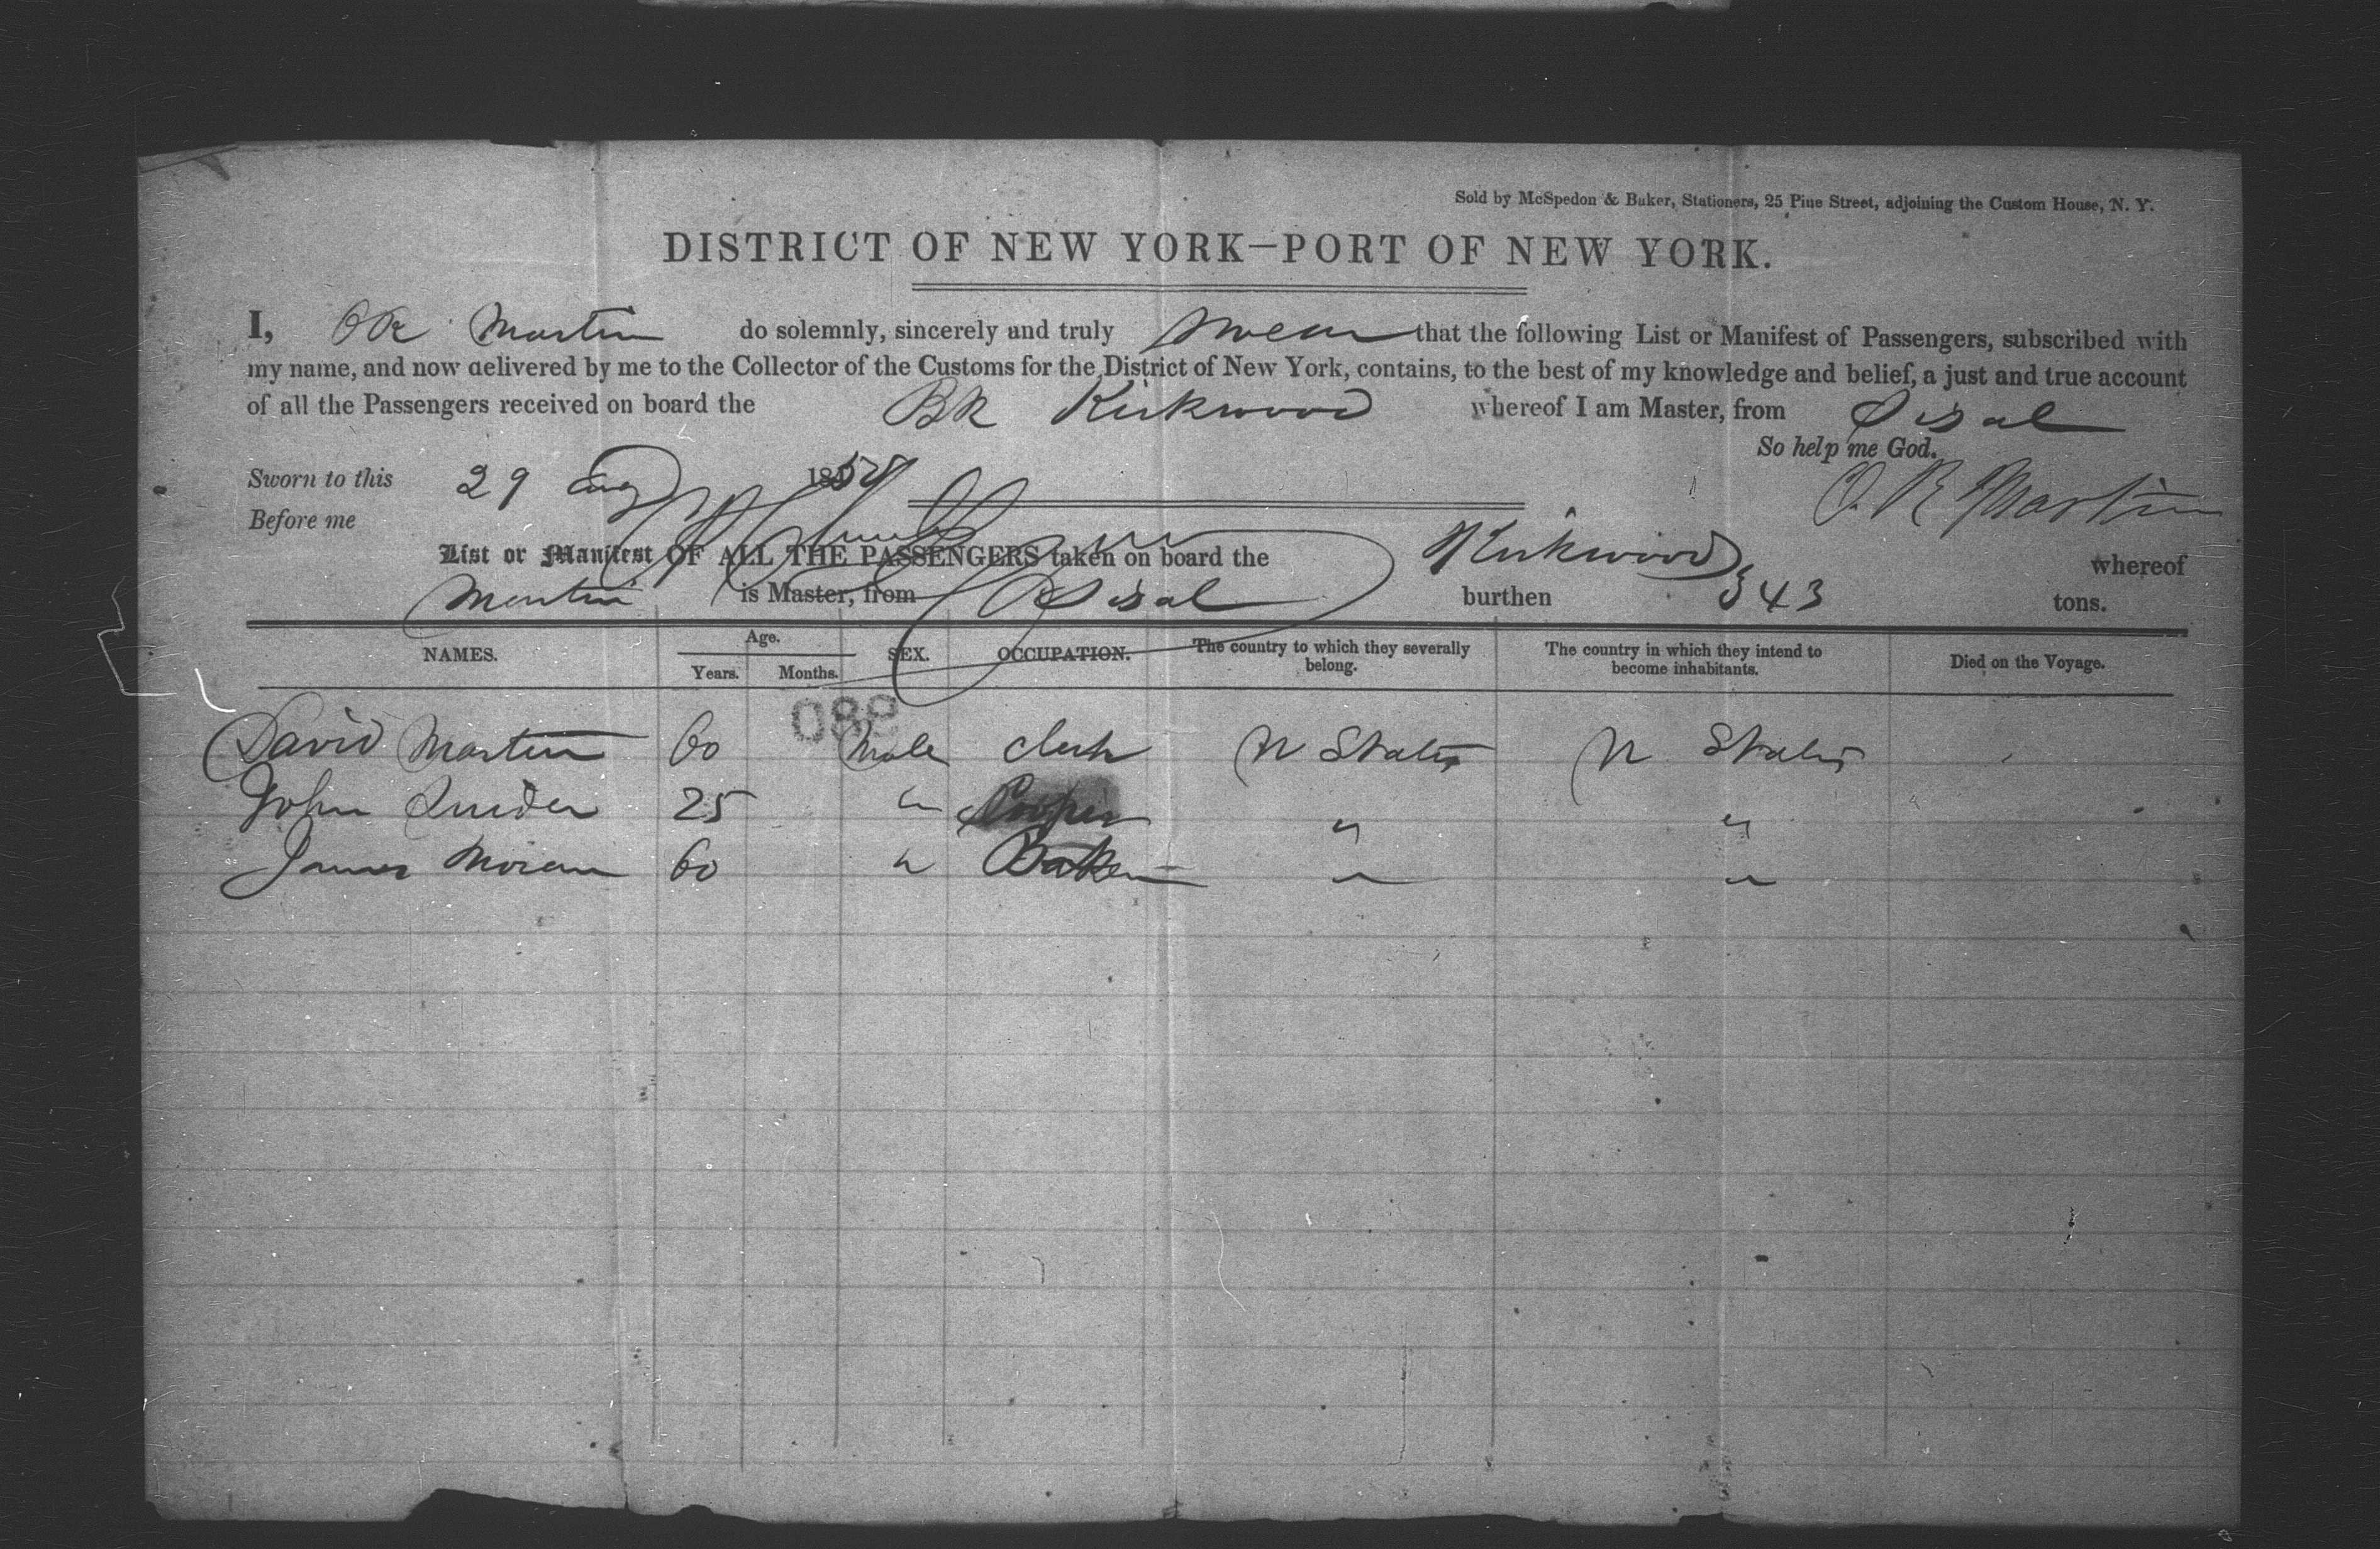 Sold by McSpedon & Baker, Stationers, 25 Pine Street, adjoining the Custom House, N. Y.
DISTRICT OF NEW YORK—PORT OF NEW YORK.
I, O R Martin do solemnly, sincerely and truly swear that the following List or Manifest of Passengers, subscribed with
my name, and now delivered by me to the Collector of the Customs for the District of New York, contains, to the best of my knowledge and belief, a just and true account
of all the Passengers received on board the Bk Kirkwood whereof I am Master, from Sisal
So help me God.
Sworn to this 29 Aug 185
O. R Martin
Before me
List or Manifest OF ALL THE PASSENGERS taken on board the Kirkwood whereof
Martin is Master, from Sisal burthen 343 tons.
NAMES. Age. Years. Months. SEX. OCCUPATION. The country to which they severally belong. The country in which they intend to become inhabitants. Died on the Voyage.
880
David Martin 60 Male Clerk U States U States
John Snider 25 " Cooper " "
James Moran 60 " Baker " "